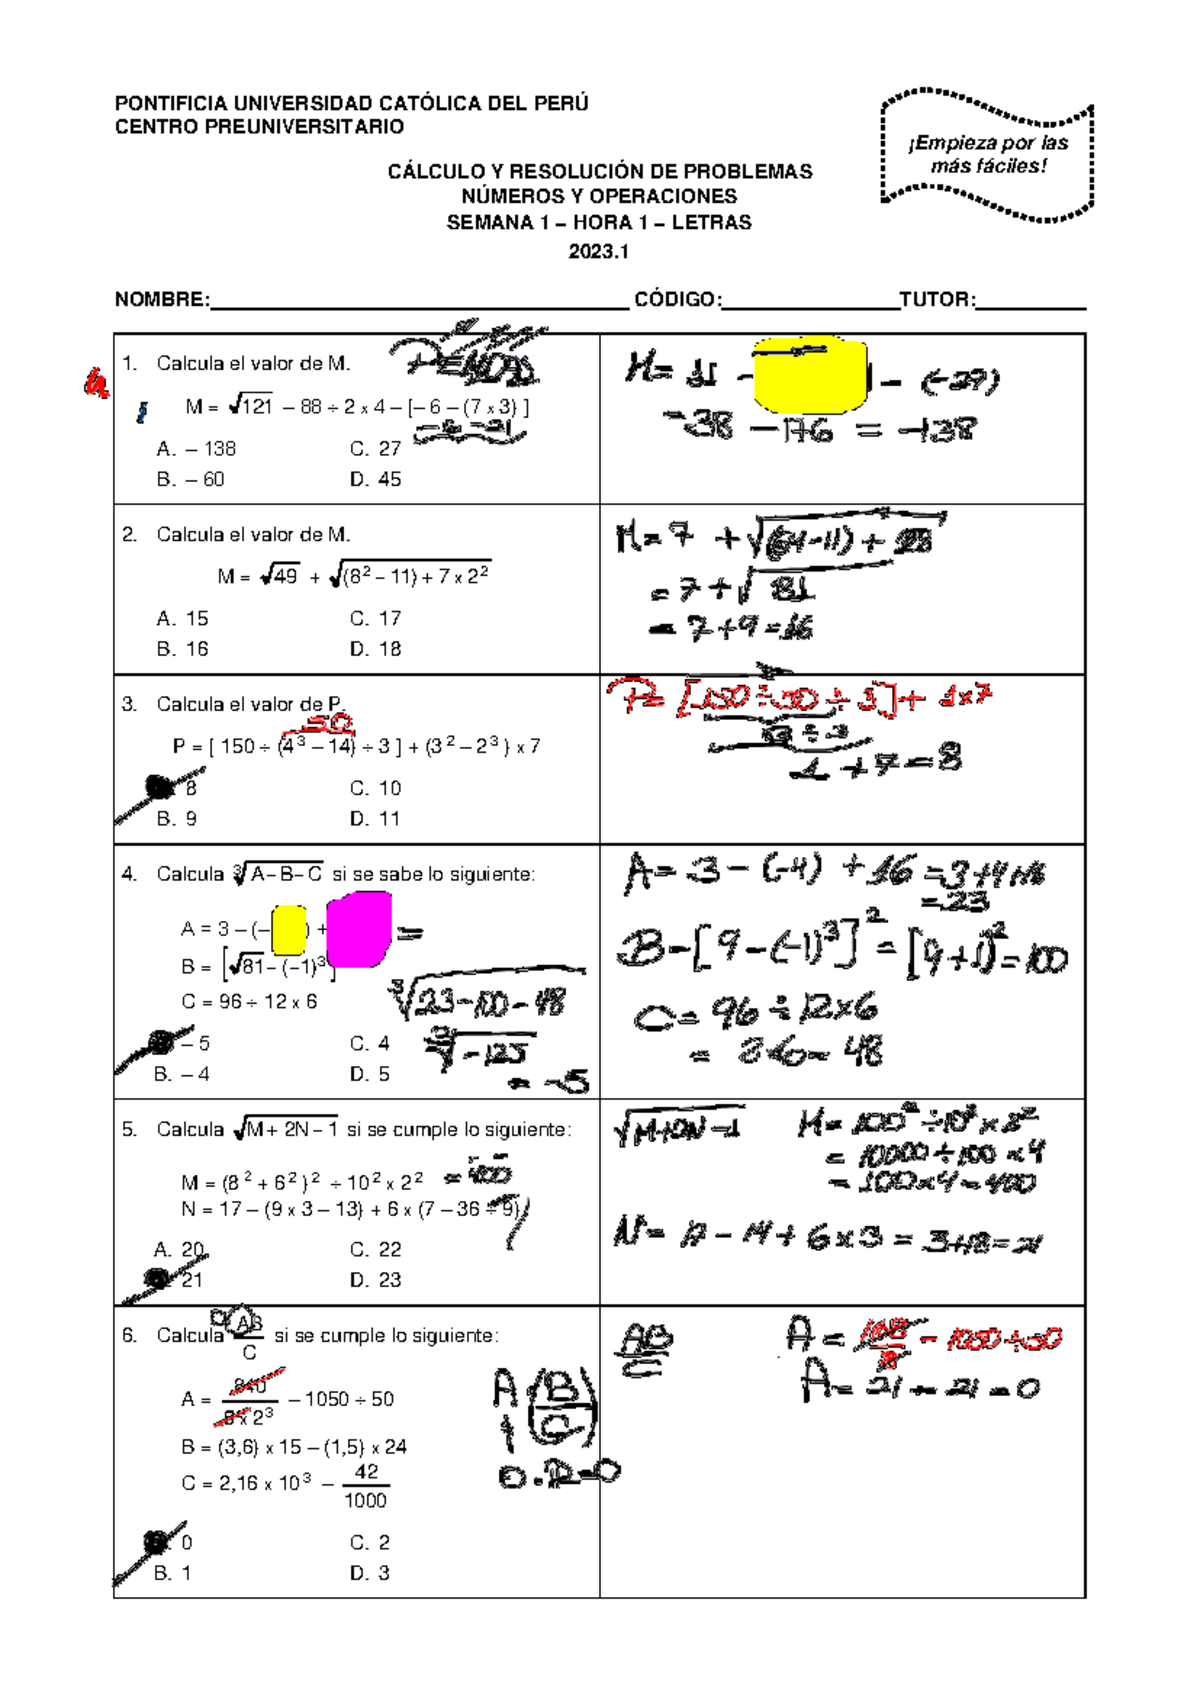 PONTIFICIA UNIVERSIDAD CATÓLICA DEL PERÚ
CENTRO PREUNIVERSITARIO
¡Empieza por las
más fáciles!
CÁLCULO Y RESOLUCIÓN DE PROBLEMAS
NÚMEROS Y OPERACIONES
SEMANA 1 – HORA 1 – LETRAS
2023.1
NOMBRE: CÓDIGO: TUTOR:
1. Calcula el valor de M.
M = √121 – 88 ÷ 2 x 4 – [– 6 – (7 x 3) ]
– 6 – 21
A. – 138 C. 27
B. – 60 D. 45
M = 11 – – (–27)
= 38 – 176 = –138
2. Calcula el valor de M.
M = √49 + √(8² – 11) + 7 x 2²
A. 15 C. 17
B. 16 D. 18
M = 7 + √(64–11) + 28
= 7 + √81
= 7+9 =16
3. Calcula el valor de P.
50
P = [ 150 ÷ (4³ – 14) ÷ 3 ] + (3² – 2³ ) x 7
8 C. 10
B. 9 D. 11
P= [150 ÷ 50 ÷ 3] + 1x7
3 ÷ 3
1 + 7 = 8
4. Calcula ∛A – B – C si se sabe lo siguiente:
A = 3 – (– ) +  =
B = [√81 – (–1)³ ]
C = 96 ÷ 12 x 6
– 5 C. 4
B. – 4 D. 5
∛23–100–48
∛–125
= –5
A = 3 – (–4) + 16 = 3+4+16
= 23
B = [9 – (–1)³]² = [9+1]² = 100
C = 96 ÷ 12x6
= 8x6 = 48
5. Calcula √M + 2N – 1 si se cumple lo siguiente:
M = (8² + 6² )² ÷ 10² x 2² = 400
N = 17 – (9 x 3 – 13) + 6 x (7 – 36 ÷ 9)
A. 20 C. 22
21 D. 23
√M+2N–1
M = 100² ÷ 10² x 2²
= 10000 ÷ 100 x 4
= 100x4 = 400
N = 17 – 14 + 6 x 3 = 3+18 = 21
6. Calcula AB/C si se cumple lo siguiente:
A = 840/(5 x 2³) – 1050 ÷ 50
B = (3,6) x 15 – (1,5) x 24
C = 2,16 x 10³ – 42/1000
0 C. 2
B. 1 D. 3
A (B/C)
AB/C
A = 168/8 – 1050 ÷ 50
A = 21 – 21 = 0